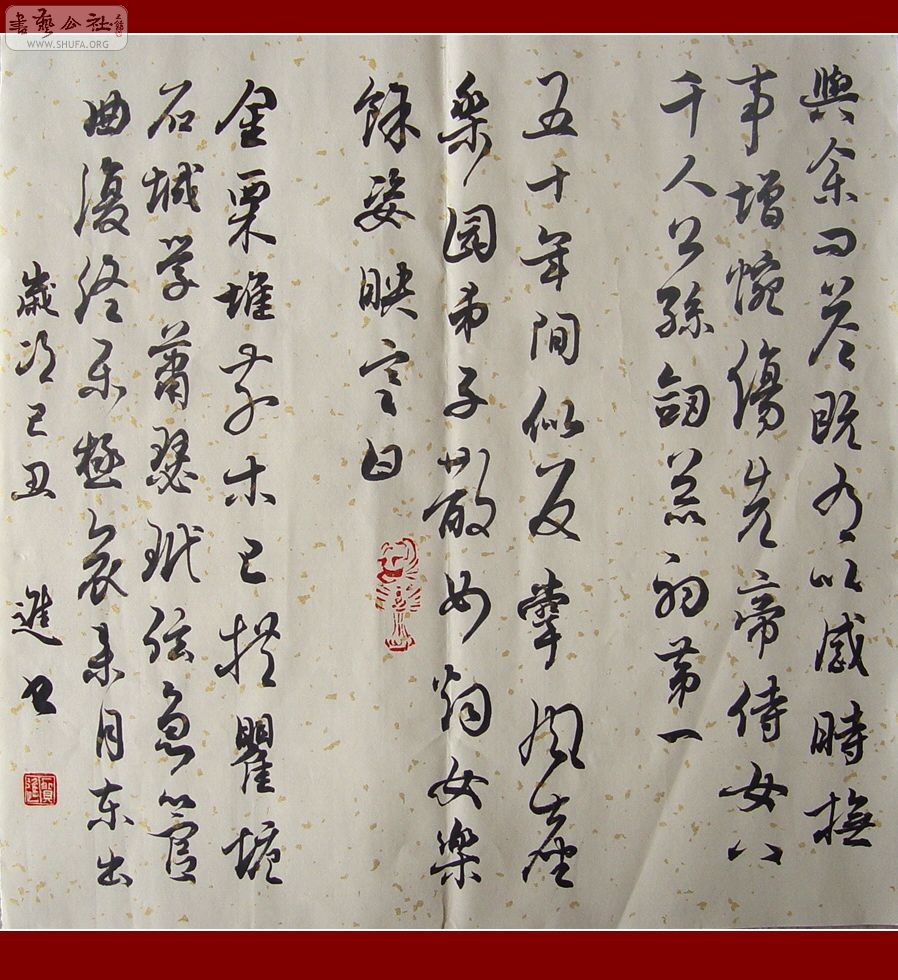 書藝公社
WWW.SHUFA.ORG
與余問答既有以感時撫
事增惋傷先帝侍女八
千人公孫劍器初第一
五十年間似反掌風塵
梨園弟子散如烟女樂
餘姿映寒日
金粟堆前木已拱瞿塘
石城草蕭瑟玳弦急管
曲復終樂極哀來月東出
歲次己丑 進書